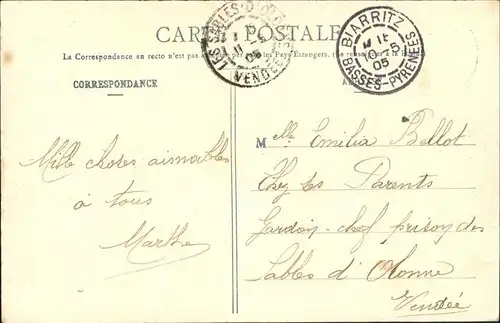 CARTE POSTALE
La Correspondance au recto n'est pas
les Pays Étrangers. (Se renseigner
CORRESPONDANCE
LES SABLES-D'OLONNE
11
05
VENDÉE
BIARRITZ
10-5
05
BASSES-PYRENEES
Mille choses aimables
à tous
Marthe
Mlle Emilia Bellot
Chez ses Parents
Gardien-chef prison des
Sables d'Olonne
Vendée